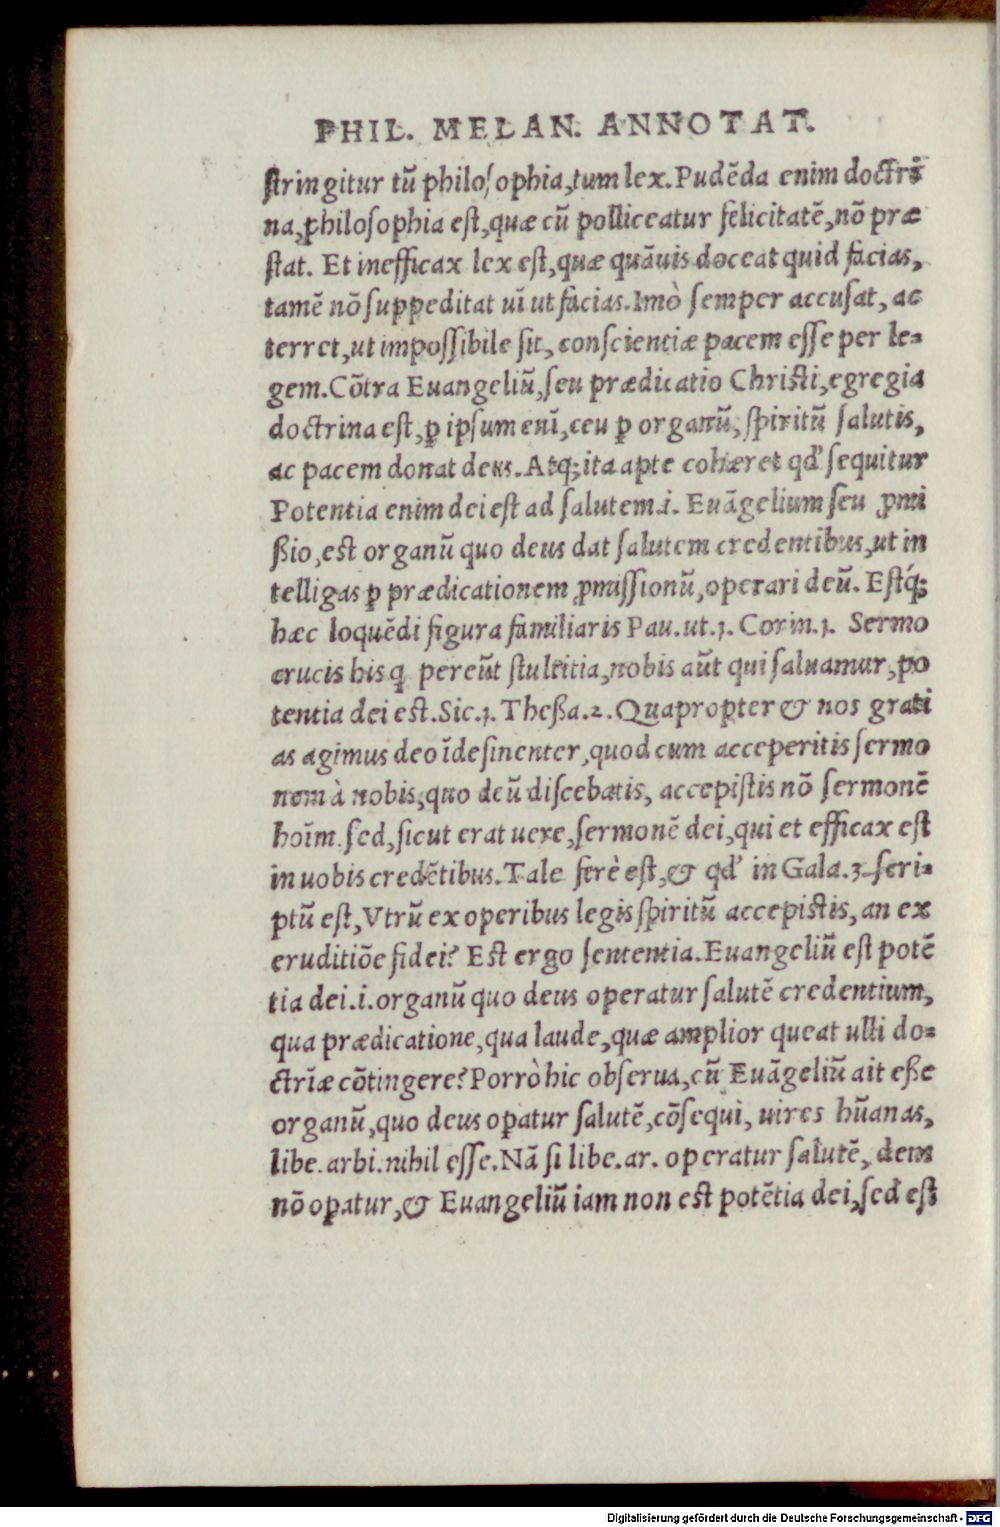 PHIL. MELAN. ANNOTAT.
ſtringitur tū philoſophia, tum lex. Pudēda enim doctri
na, philoſophia eſt, quæ cū polliceatur felicitatē, nō præ
ſtat. Et inefficax lex eſt, quæ quāuis doceat quid facias,
tamē nō ſuppeditat uī ut facias. Imò ſemper accuſat, ac
terret, ut impoſſibile ſit, conſcientiæ pacem eſſe per le⸗
gem. Cōtra Euangeliū, ſeu prædicatio Chriſti, egregia
doctrina eſt, ꝑ ipſum enī, ceu ꝑ organū, ſpiritū ſalutis,
ac pacem donat deus. Atq; ita apte cohæret qď ſequitur
Potentia enim dei eſt ad ſalutem .i. Euāgelium ſeu ꝓmi
ßio, eſt organū quo deus dat ſalutem credentibus, ut in
telligas ꝑ prædicationem ꝓmiſſionū, operari deū. Eſtq́;
hæc loquēdi figura familiaris Pau. ut .1. Corin. 1. Sermo
crucis his ꝗ pereūt ſtultitia, nobis aūt qui ſaluamur, po
tentia dei eſt. Sic .1. Theßa. 2. Quapropter & nos grati
as agimus deo īdeſinenter, quod cum acceperitis ſermo
nem à nobis, quo deū diſcebatis, accepiſtis nō ſermonē
hoīm. ſed, ſicut erat uere, ſermonē dei, qui et efficax eſt
in uobis credētibus. Tale ferè eſt, & qď in Gala. 3. ſcri⸗
ptū eſt, Vtrū ex operibus legis ſpiritū accepiſtis, an ex
eruditiōe fidei? Eſt ergo ſententia. Euangeliū eſt potē
tia dei .i. organū quo deus operatur ſalutē credentium,
qua prædicatione, qua laude, quæ amplior queat ulli do⸗
ctrīæ cōtingere? Porrò hic obſerua, cū Euāgeliū ait eße
organū, quo deus oꝑatur ſalutē, cōſequi, uires hūanas,
libe. arbi. nihil eſſe. Nā ſi libe. ar. operatur ſalutē, deus
nō oꝑatur, & Euangeliū iam non eſt potētia dei, ſed eſt
Digitalisierung gefördert durch die Deutsche Forschungsgemeinschaft - DFG